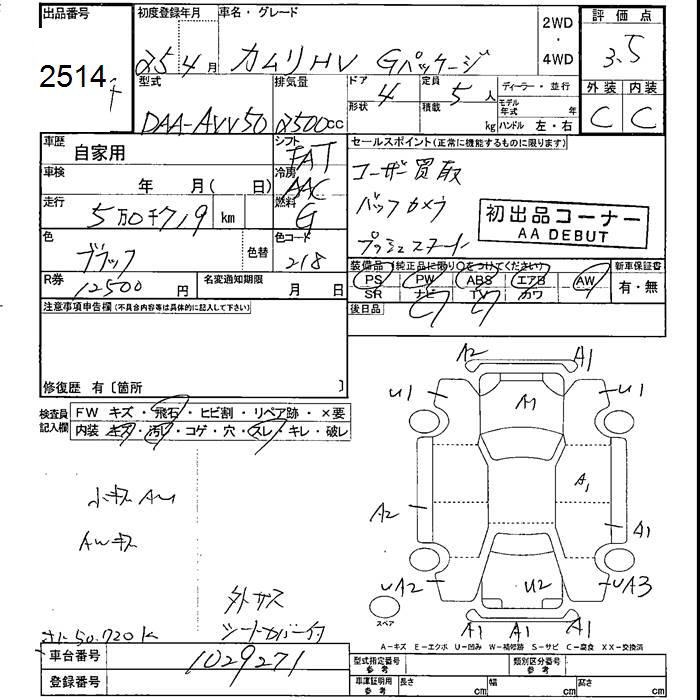 出品番号 初度登録年月 車名・グレード 2WD・4WD 評価点
2514 25年4月 カムリHV Gパッケージ 3.5
型式 排気量 ドア形状 4 定員 5人 積載 kg ディーラー・並行 モデル年式 年 ハンドル 左・右 外装 内装
DAA-AVV50 2500cc C C
車歴 自家用 シフト FAT セールスポイント(正常に機能するものに限ります)
車検 年 月(日) 冷房 AAC ユーザー買取
走行 5万0千719 km 燃料 G バックカメラ
初出品コーナー
AA DEBUT
色 ブラック 色替 色コード 218 プッシュスタート
R券 12500円 名変通知期限 月 日
装備品(純正品に限り○をつけてください) 新車保証書
PS PW ABS エアB AW 有・無
SR ナビ TV カワ
注意事項申告欄(不具合内容等は具体的に記入して下さい) 後日品
修復歴 有〔箇所 〕
検査員記入欄 FW キズ・飛石・ヒビ割・リペア跡・×要
内装 キズ・汚れ・コゲ・穴・スレ・キレ・破レ
A2 A1
U1 A1 U1
小キズAU
AWキズ
A2 A1 A1
UA2 U2 UA3
スペア
A1 A1 A1
外サス
シートカバー付
50.720K
A-キズ E-エクボ U-凹み W-補修跡 S-サビ C-腐食 XX-交換済
車台番号 1029271
登録番号
型式指定番号 参考 類別区分番号 参考
車庫証明用 参考 長さ cm 幅 cm 高さ cm